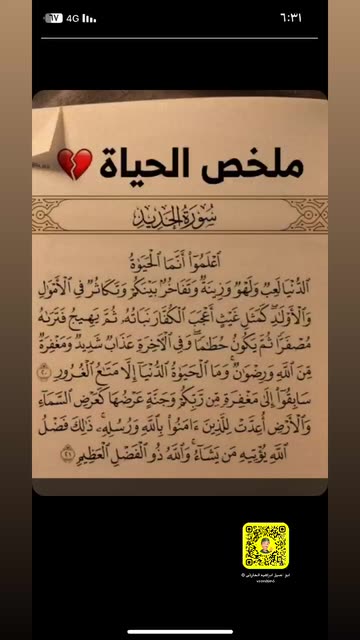 ٦:٣١
4G ٦٧
ملخص الحياة 💔
سُورَةُ الحَدِيدِ
ٱعۡلَمُوٓاْ أَنَّمَا ٱلۡحَيَوٰةُ
ٱلدُّنۡيَا لَعِبٞ وَلَهۡوٞ وَزِينَةٞ وَتَفَاخُرُۢ بَيۡنَكُمۡ وَتَكَاثُرٞ فِي ٱلۡأَمۡوَٰلِ
وَٱلۡأَوۡلَٰدِۖ كَمَثَلِ غَيۡثٍ أَعۡجَبَ ٱلۡكُفَّارَ نَبَاتُهُۥ ثُمَّ يَهِيجُ فَتَرَىٰهُ
مُصۡفَرّٗا ثُمَّ يَكُونُ حُطَٰمٗاۖ وَفِي ٱلۡأٓخِرَةِ عَذَابٞ شَدِيدٞ وَمَغۡفِرَةٞ
مِّنَ ٱللَّهِ وَرِضۡوَٰنٞۚ وَمَا ٱلۡحَيَوٰةُ ٱلدُّنۡيَآ إِلَّا مَتَٰعُ ٱلۡغُرُورِ ٢٠
سَابِقُوٓاْ إِلَىٰ مَغۡفِرَةٖ مِّن رَّبِّكُمۡ وَجَنَّةٍ عَرۡضُهَا كَعَرۡضِ ٱلسَّمَآءِ
وَٱلۡأَرۡضِ أُعِدَّتۡ لِلَّذِينَ ءَامَنُواْ بِٱللَّهِ وَرُسُلِهِۦۚ ذَٰلِكَ فَضۡلُ
ٱللَّهِ يُؤۡتِيهِ مَن يَشَآءُۚ وَٱللَّهُ ذُو ٱلۡفَضۡلِ ٱلۡعَظِيمِ ٢١